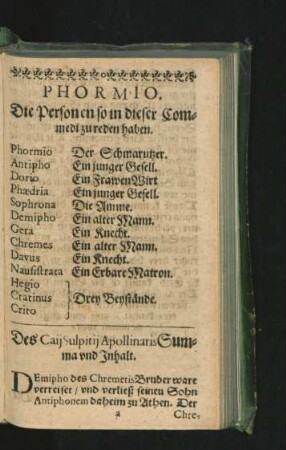 PHORMIO.
Die Personen so in dieser Com-
medi zu reden haben.
Phormio Der Schmarutzer.
Antipho Ein junger Gesell.
Dorio Ein Frawen Wirt
Phædria Ein junger Gesell.
Sophrona Die Amme.
Demipho Ein alter Mann.
Geta Ein Knecht.
Chremes Ein alter Mann.
Davus Ein Knecht.
Nausistrata Ein Erbare Matron.
Hegio
Cratinus Drey Beystände.
Crito
Des Caij Sulpitij Apollinaris Sum-
ma vnd Inhalt.
DEmipho des Chremetis Bruder ware
verreiset / vnd verließ seinen Sohn
Antiphonem daheim zu Athen. Der
a Chre-